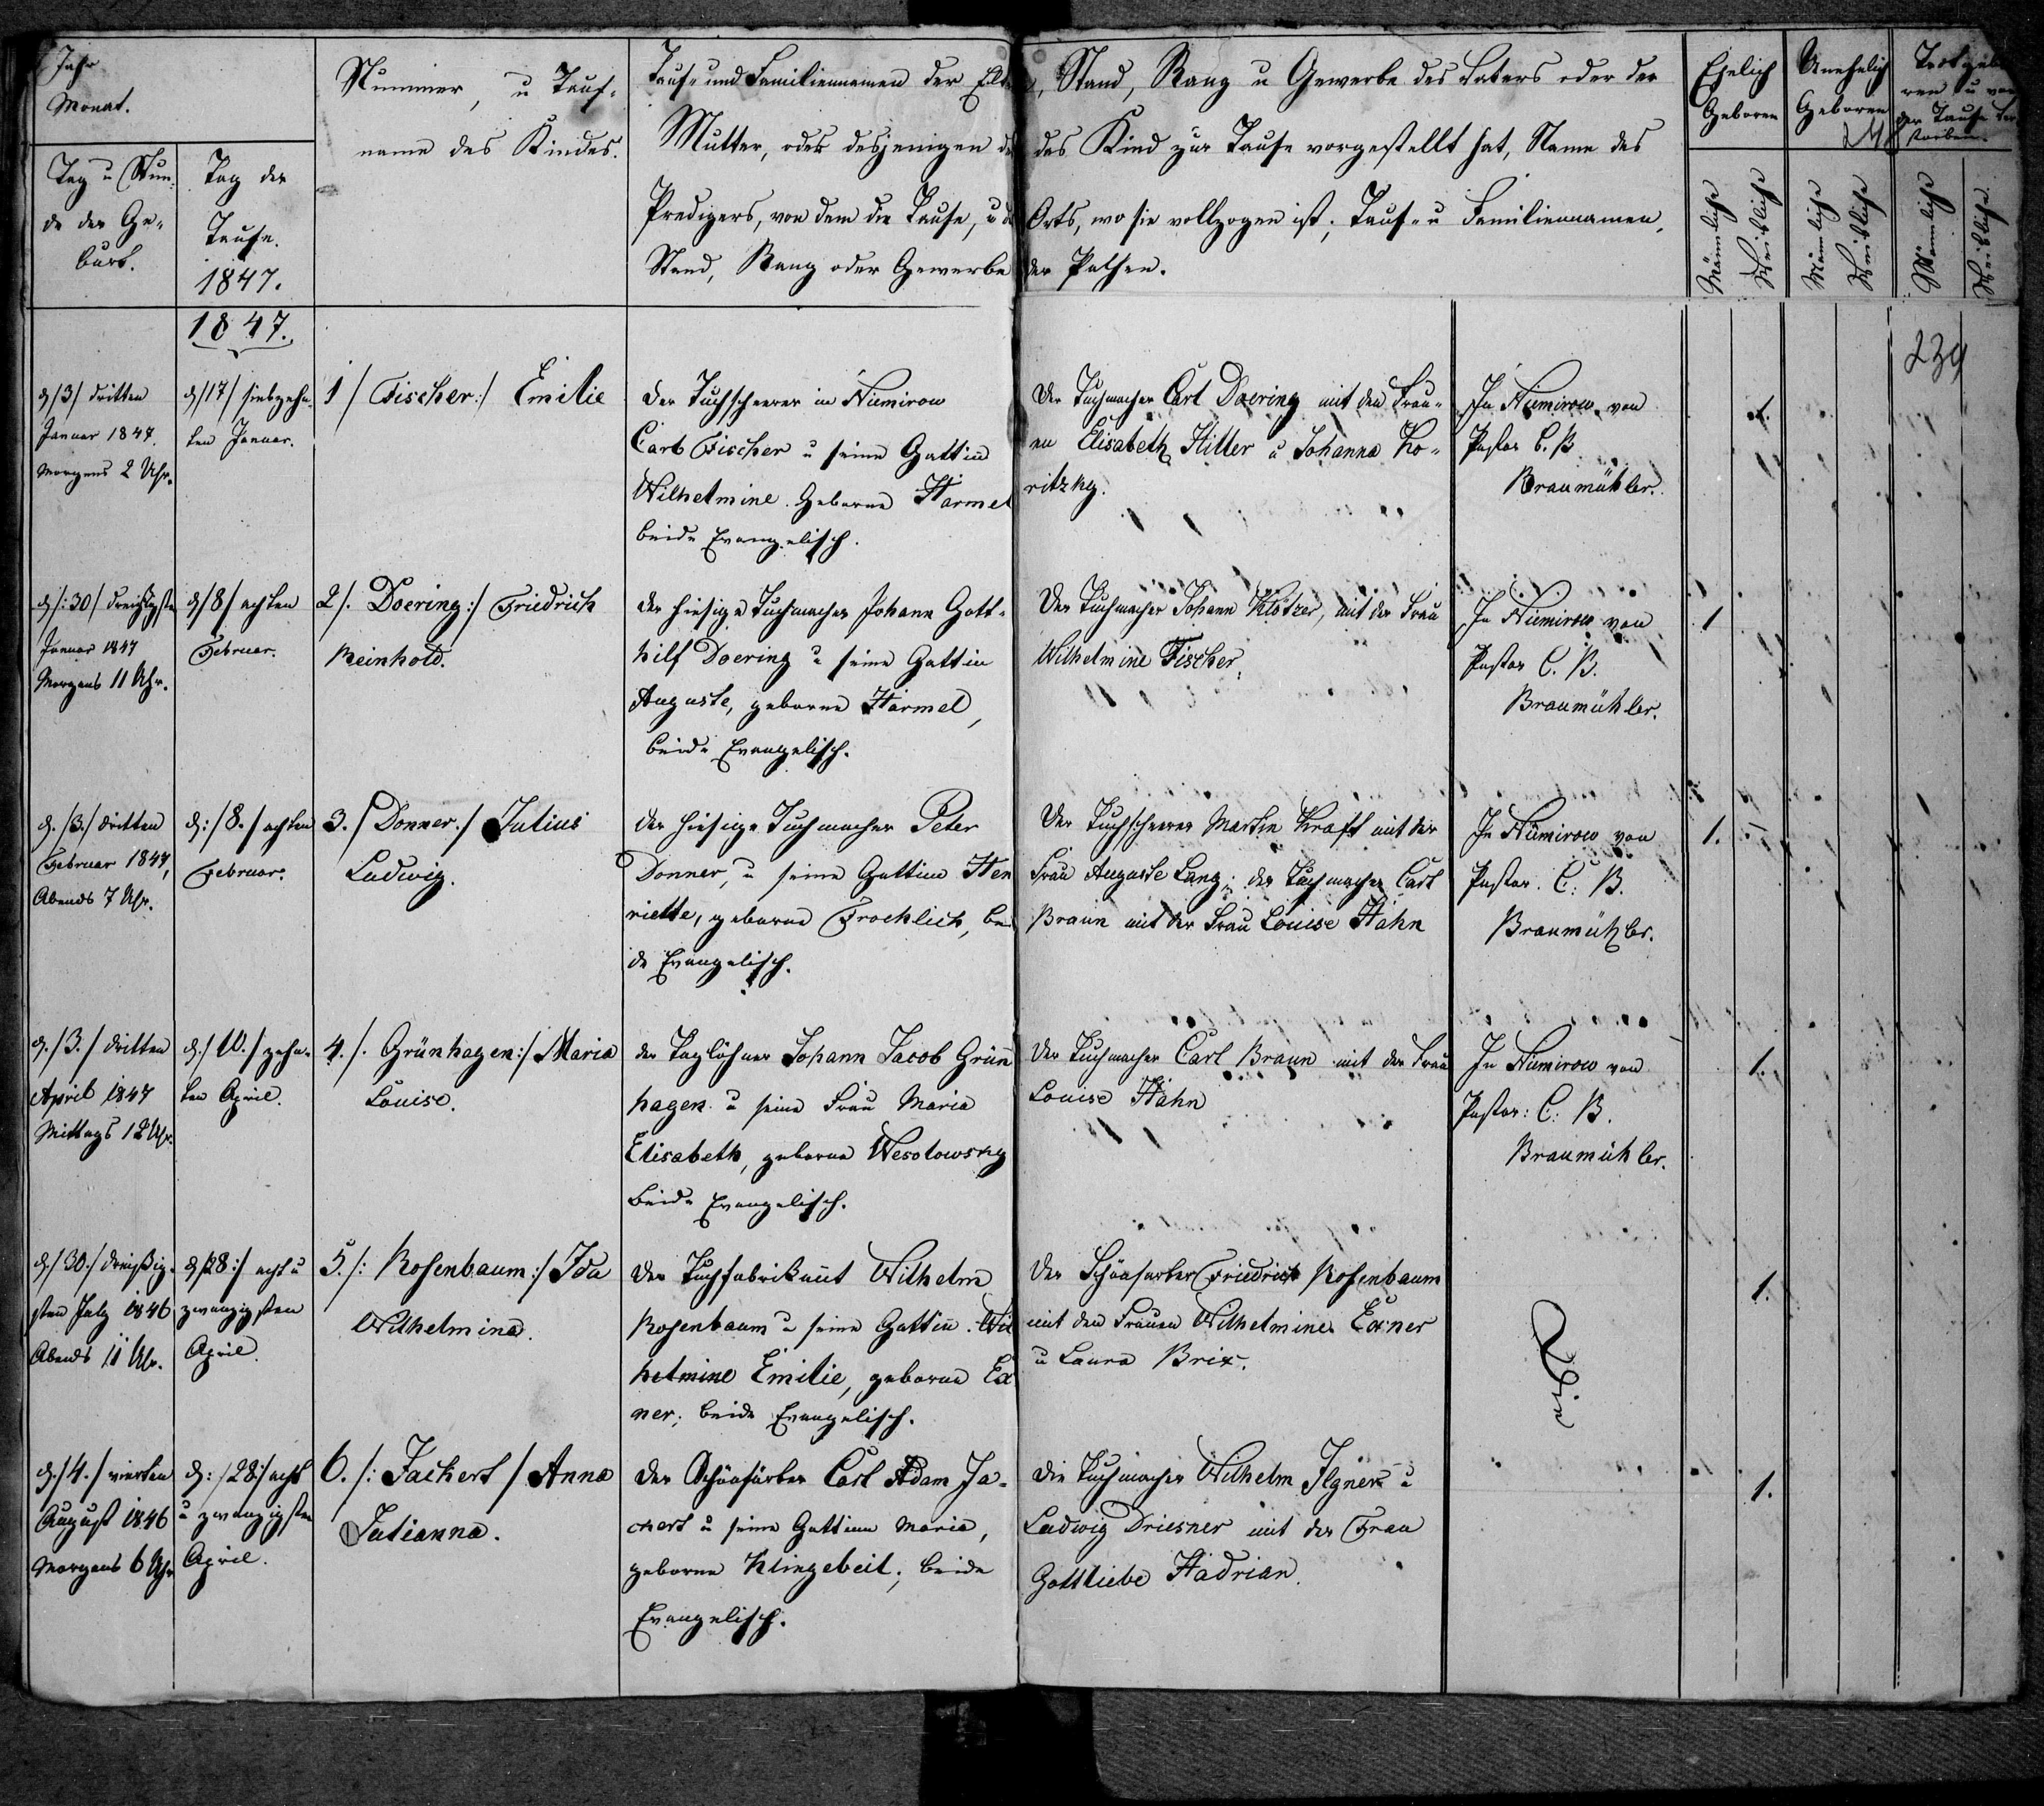 Jahr
Monat.
Tag u Stun-
de der Ge-
burt.
Tag der
Taufe.
1847.
Nummer, u Tauf-
name des Kindes.
Tauf- und Familiennamen der Elte
n, Stand, Rang u Gewerbe des Vaters oder der
Mutter, oder desjenigen de
das Kind zur Taufe vorgestellt hat, Name des
Predigers, von dem die Taufe, u d
Orts, wo sie vollzogen ist, Tauf- u Familiennamen,
Stand, Rang oder Gewerbe
der Pathen.
Ehelich
Geboren
Unehelich
Geboren
Todtgebo
ren u vor
der Taufe Ver
storben.
Männliche
Weibliche
Männliche
Weibliche
Männliche
Weibliche
1847.
239
d/3/ dritten
Januar 1847.
Morgens 2 Uhr.
d/17/ siebzehn-
ten Januar.
1/ Fischer:/ Emilie
Der Tuchscheerer in Niemirow
Carl Fischer u seine Gattin
Wilhelmine. Geborne Harmel
beide Evangelisch.
Der Tuchmacher Carl Doering mit den Frau-
en Elisabeth Hiller u Johanna Ko-
ritzky.
In Niemirow von
Pastor C. B
Braumühler.
1.
d/:30/ dreißigsten
Januar 1847
Morgens 11 Uhr.
d/8/ achten
Februar.
2/. Doering:/ Friedrich
Reinhold.
der hiesige Tuchmacher Johann Gott-
hilf Doering u seine Gattin
Auguste, geborne Harmel,
beide Evangelisch.
Der Tuchmacher Johann Klötzer, mit der Frau
Wilhelmine Fischer.
In Niemirow von
Pastor C. B.
Braumühler.
1
d./3./ dritten
Februar 1847,
Abends 7 Uhr.
d:/8./ achten
Februar.
3./ Donner./ Julius
Ludwig.
der hiesige Tuchmacher Peter
Donner, u seine Gattin Hen
riette, geborne Froehlich, bei
de Evangelisch.
Der Tuchscheerer Martin Kraft mit der
Frau Auguste Lang; der Tuchmacher Carl
Braun mit der Frau Louise Hahn
In Niemirow von
Pastor. C: B.
Braumühler.
1.
d./3./ dritten
April 1847
Mittags 12 Uhr.
d./10./ zehn-
ten April.
4./. Grünhagen:/ Maria
Louise.
der Taglöhner Johann Jacob Grün
hagen u seine Frau Maria
Elisabeth, geborne Wesolowsky
beide Evangelisch.
Der Tuchmacher Carl Braun mit der Frau
Louise Hahn
In Niemirow von
Pastor: C: B.
Braumühler.
1.
d/30./ dreißig-
sten July 1846
Abends 11 Uhr.
d/28:/ acht u
zwanzigsten
April.
5./: Rosenbaum:/ Ida
Wilhelmina.
Der Tuchfabrikant Wilhelm
Rosenbaum u seine Gattin. Wil
helmine Emilie, geborne Ex
ner; beide Evangelisch.
Der Schönfärber Friedrich Rosenbaum
mit den Frauen Wilhelmine Exner
u Laura Brix.
1.
d./4./ vierten
August 1846
Morgens 6 Uhr
d:/28:/ acht
u zwanzigsten
April.
6./: Jackert/ Anna
Julianna.
Der Schönfärber Carl Adam Ja-
ckert u seine Gattinn Maria,
geborne Klingebeil; beide
Evangelisch.
Die Tuchmacher Wilhelm Ilgner u
Ludwig Driesner mit der Frau
Gottliebe Hadrian.
1.